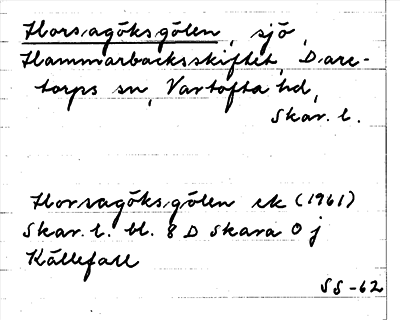 Horsagöksgölen, sjö,
Hammarbacksskiftet, Dare-
torps sn, Vartofta hd,
Skar. l.
Horsagöksgölen ek (1961)
Skar. l. bl. 8 D Skara 0 j
Källefall
SS-62